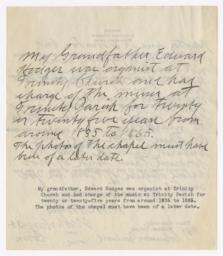 My Grandfather Edward
Hodges was organist at
Trinity Church and had
charge of the music at
Trinity Parish for twenty
or twenty five years from
around 1835 to 1865.
The photos of the chapel must have
been of a later date.
My grandfather, Edward Hodges was organist at Trinity
Church and had charge of the music at Trinity Parish for
twenty or twenty-five years from around 1835 to 1865.
The photos of the chapel must have been of a later date.